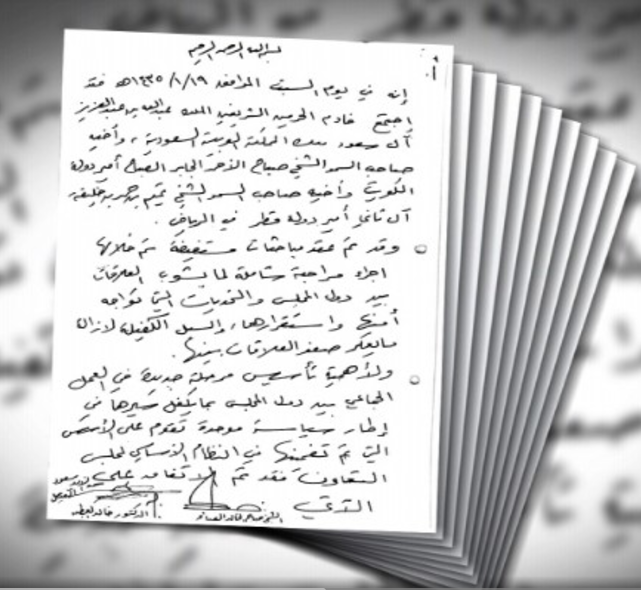 بسم الله الرحمن الرحيم
إنه في يوم السبت الموافق ١٤٣٥/١/١٩هـ فقد
إجتمع خادم الحرمين الشريفين الملك عبدالله بن عبدالعزيز
آل سعود ملك المملكة العربية السعودية، وأخيه
صاحب السمو الشيخ صباح الأحمد الجابر الصباح أمير دولة
الكويت وأخيه صاحب السمو الشيخ تميم بن حمد بن خليفة
آل ثاني أمير دولة قطر في الرياض.
وقد تم عقد مباحثات مستفيضة تم خلالها
اجراء مراجعة شاملة لما يشوب العلاقات
بين دول المجلس والتحديات التي تواجه
أمنها واستقرارها، والسبل الكفيلة لإزالة
مايعكر صفو العلاقات بينها.
ولأهمية تأسيس مرحلة جديدة في العمل
الجماعي بين دول المجلس بما يكفل سيرها في
إطار سياسة موحدة تقوم على الأسس
التي تم تضمينها في النظام الأساسي لمجلس
التعاون فقد تم الاتفاق على
التالي